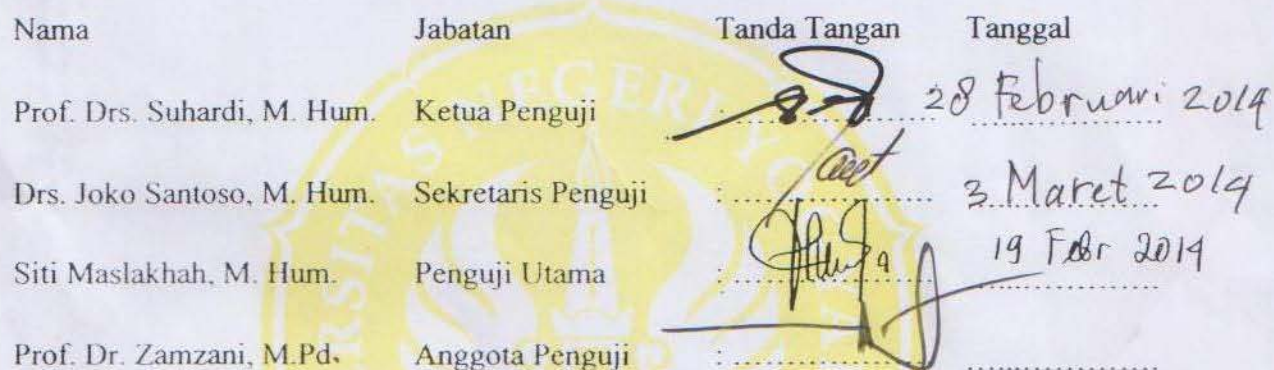 Nama Jabatan Tanda Tangan Tanggal
Prof. Drs. Suhardi, M. Hum. Ketua Penguji : .................... 28 Februari 2014
Drs. Joko Santoso, M. Hum. Sekretaris Penguji : .................... 3 Maret 2014
Siti Maslakhah, M. Hum. Penguji Utama : .................... 19 Febr 2014
Prof. Dr. Zamzani, M.Pd. Anggota Penguji : .................... ....................